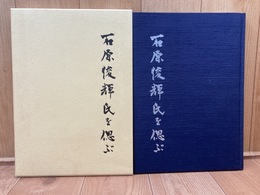 石原俊輝氏を偲ぶ
石原俊輝氏を偲ぶ